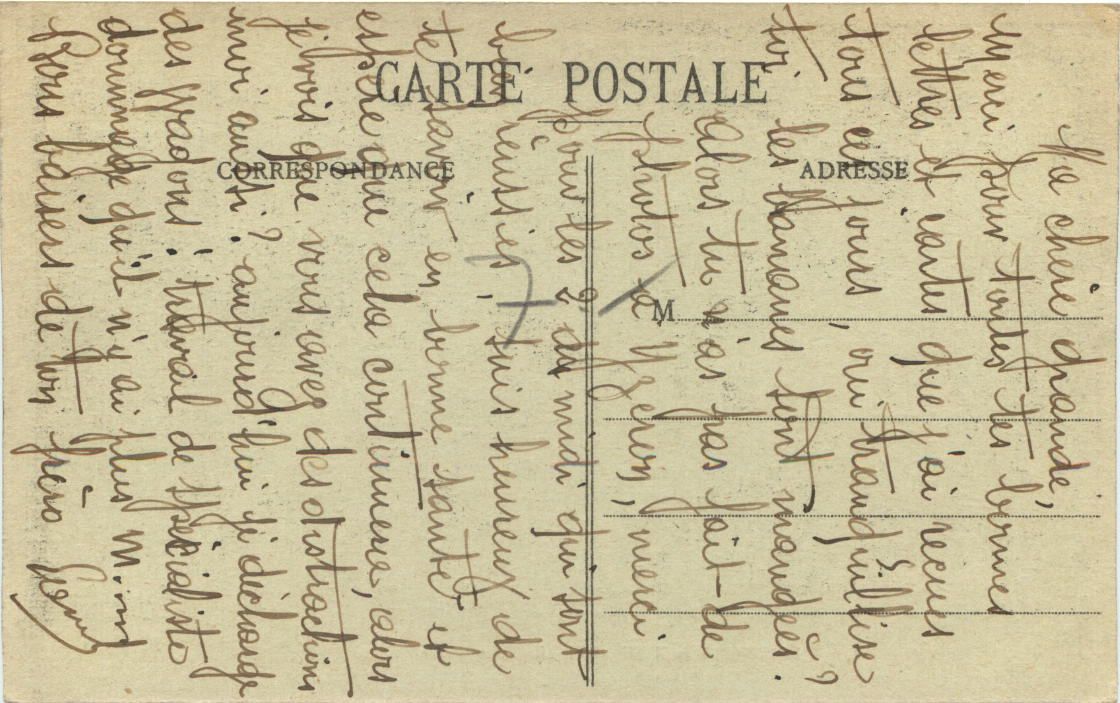 CARTE POSTALE
CORRESPONDANCE
ADRESSE
M
Ma chère grande,
Merci pour toutes tes bonnes
lettres et cartes que j'ai reçues
tous ces jours, qui tranquillise
toi, les bananes sont mangées ?
Alors tu n'as pas fait de
photos à Yzeron, merci
pour les 2 du midi qui sont
bien réussies, suis heureux de
te savoir en bonne santé et
espère que cela continuera, alors
je vois que vous avez des distractions
moi aussi ? aujourd'hui j'ai déchargé
des wagons ! travail de spécialiste
dommage qu'il n'y ai plus M.
Bons baisers de ton frère
7